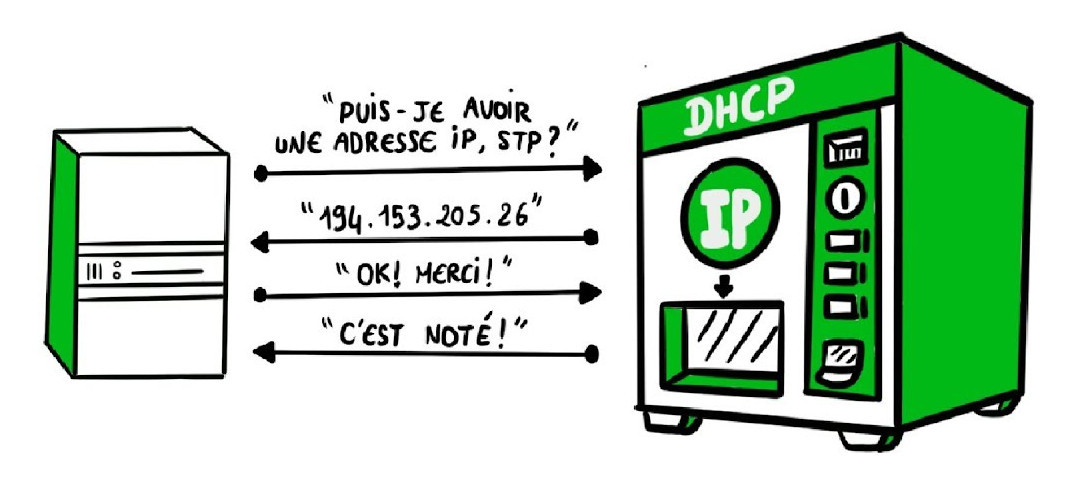 "PUIS-JE AVOIR
UNE ADRESSE IP, STP?"
"194.153.205.26"
"OK! MERCI!"
"C'EST NOTÉ!"
DHCP
IP